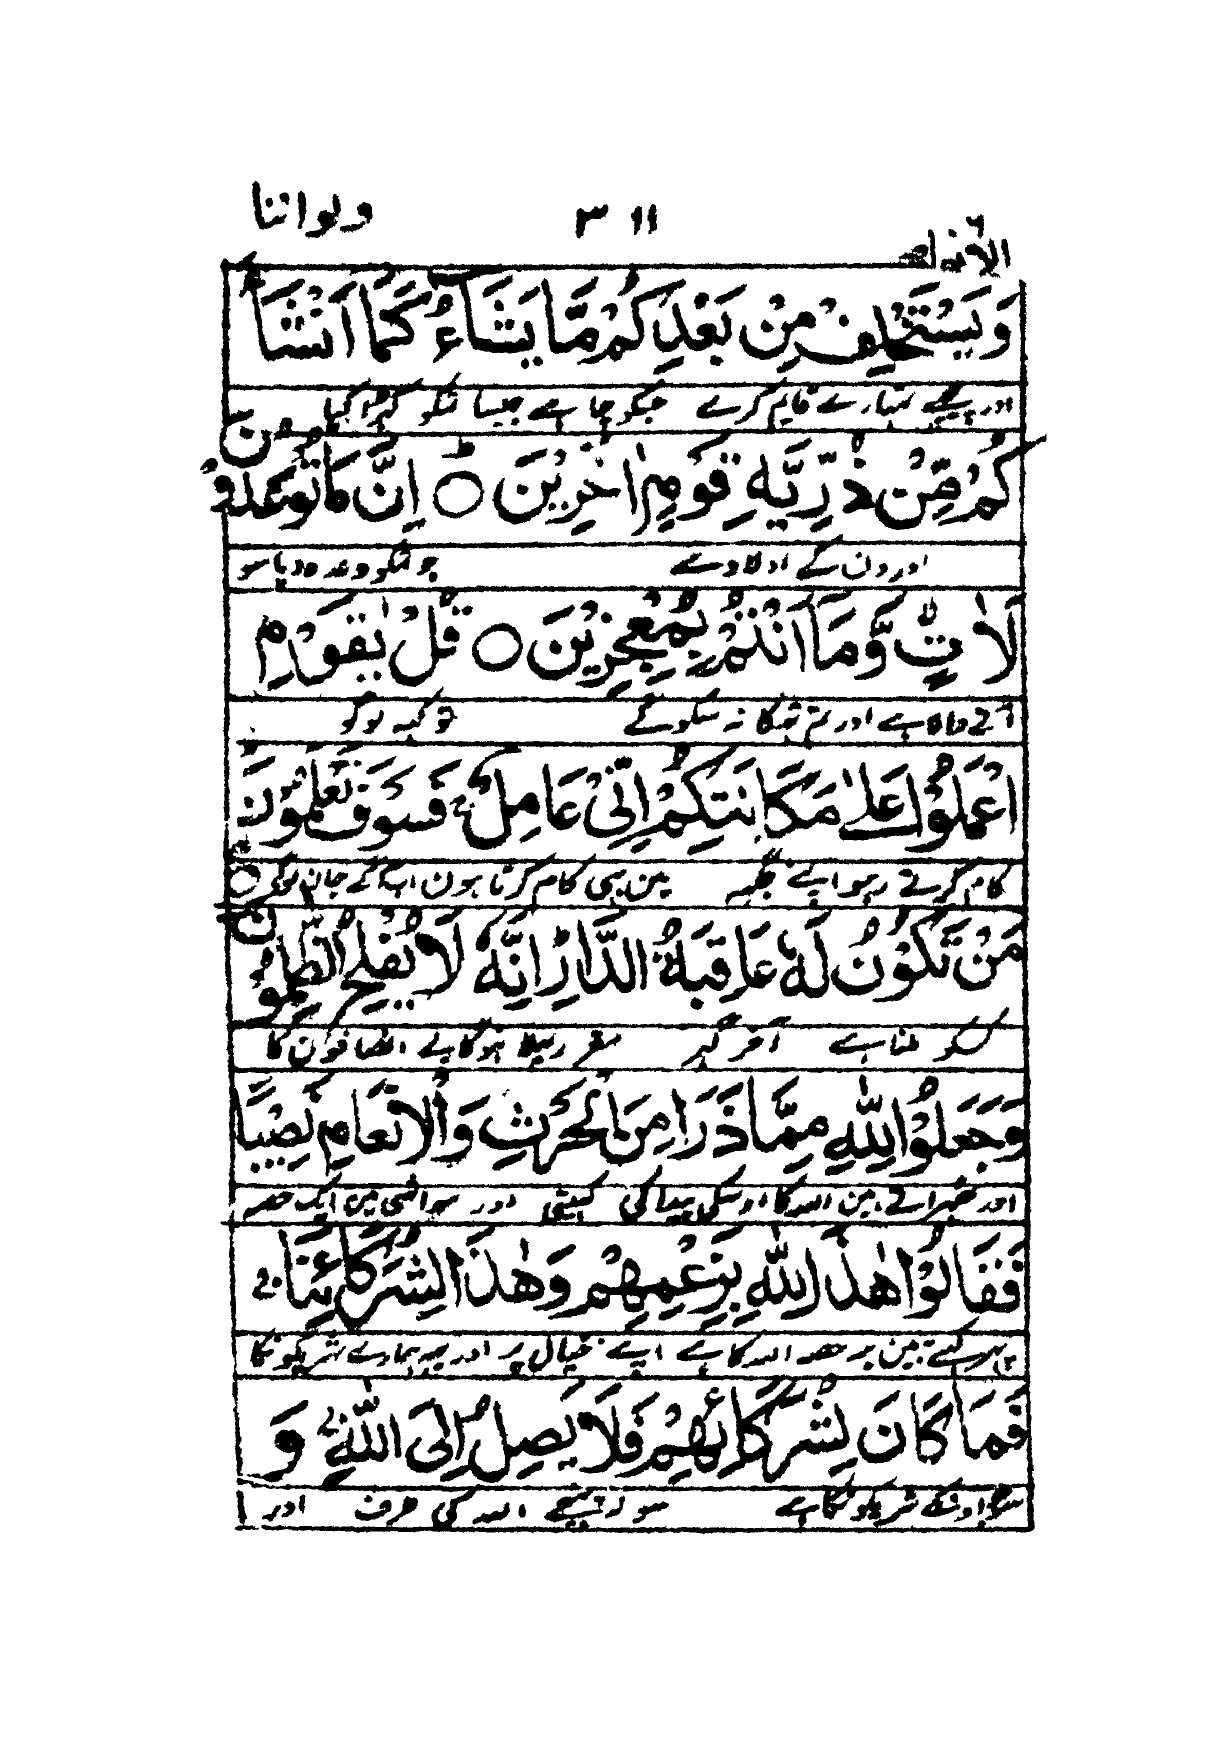 ولواننا ٣١١ الانعام ٦
وَيَسْتَخْلِفْ مِنْ بَعْدِكُمْ مَّا يَشَآءُ كَمَآ اَنْشَاَ
اور پیچھے تمہارے قایم کرے جسکو چاہے جیسا تمکو کھڑا کیا
كُمْ مِّنْ ذُرِّيَّةِ قَوْمٍ اٰخَرِيْنَ ○ اِنَّ مَا تُوْعَدُوْنَ
اورون کے اولاد سے جو تمکو وعدہ دیا سو
لَاٰتٍ وَّمَآ اَنْتُمْ بِمُعْجِزِيْنَ ○ قُلْ يٰقَوْمِ
آنے والا ہے اور تم تھکا نہ سکوگے تو کہہ لوگو
اعْمَلُوْا عَلٰى مَكَانَتِكُمْ اِنِّيْ عَامِلٌ ۚ فَسَوْفَ تَعْلَمُوْنَ ○
کام کرتے رہو اپنے جگہہ مین بہی کام کرتا ہون اب آگے جان لوگے
مَنْ تَكُوْنُ لَهٗ عَاقِبَةُ الدَّارِ ؕ اِنَّهٗ لَا يُفْلِحُ الظّٰلِمُوْنَ
کسکو ملتا ہے آخر گہر مقرر بہلا نہوگا بے انصافون کا
وَجَعَلُوْا لِلّٰهِ مِمَّا ذَرَاَ مِنَ الْحَرْثِ وَالْاَنْعَامِ نَصِيْبًا
اور ٹھہراتے ہین اللہ کا اوسکی پیدا کی کھیتی اور مواشی مین ایک حصہ
فَقَالُوْا هٰذَا لِلّٰهِ بِزَعْمِهِمْ وَهٰذَا لِشُرَكَآئِنَا ۚ
پہر کہتے ہین یہ حصہ اللہ کا ہے اپنے خیال پر اور یہہ ہمارے شریکونکا
فَمَا كَانَ لِشُرَكَآئِهِمْ فَلَا يَصِلُ اِلَى اللّٰهِ ۚ وَ
سو جو اونکے شریکونکا ہے سو نہ پہنچے اللہ کی طرف اور